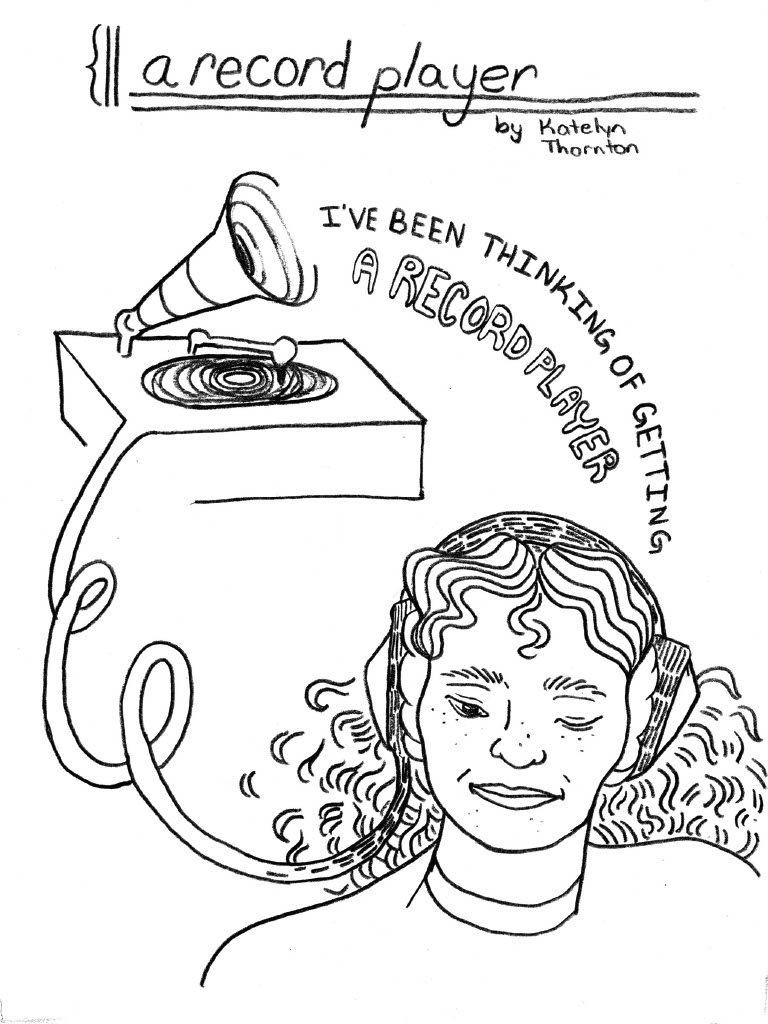 a record player
by Katelyn
Thornton
I'VE BEEN THINKING OF GETTING
A RECORD PLAYER